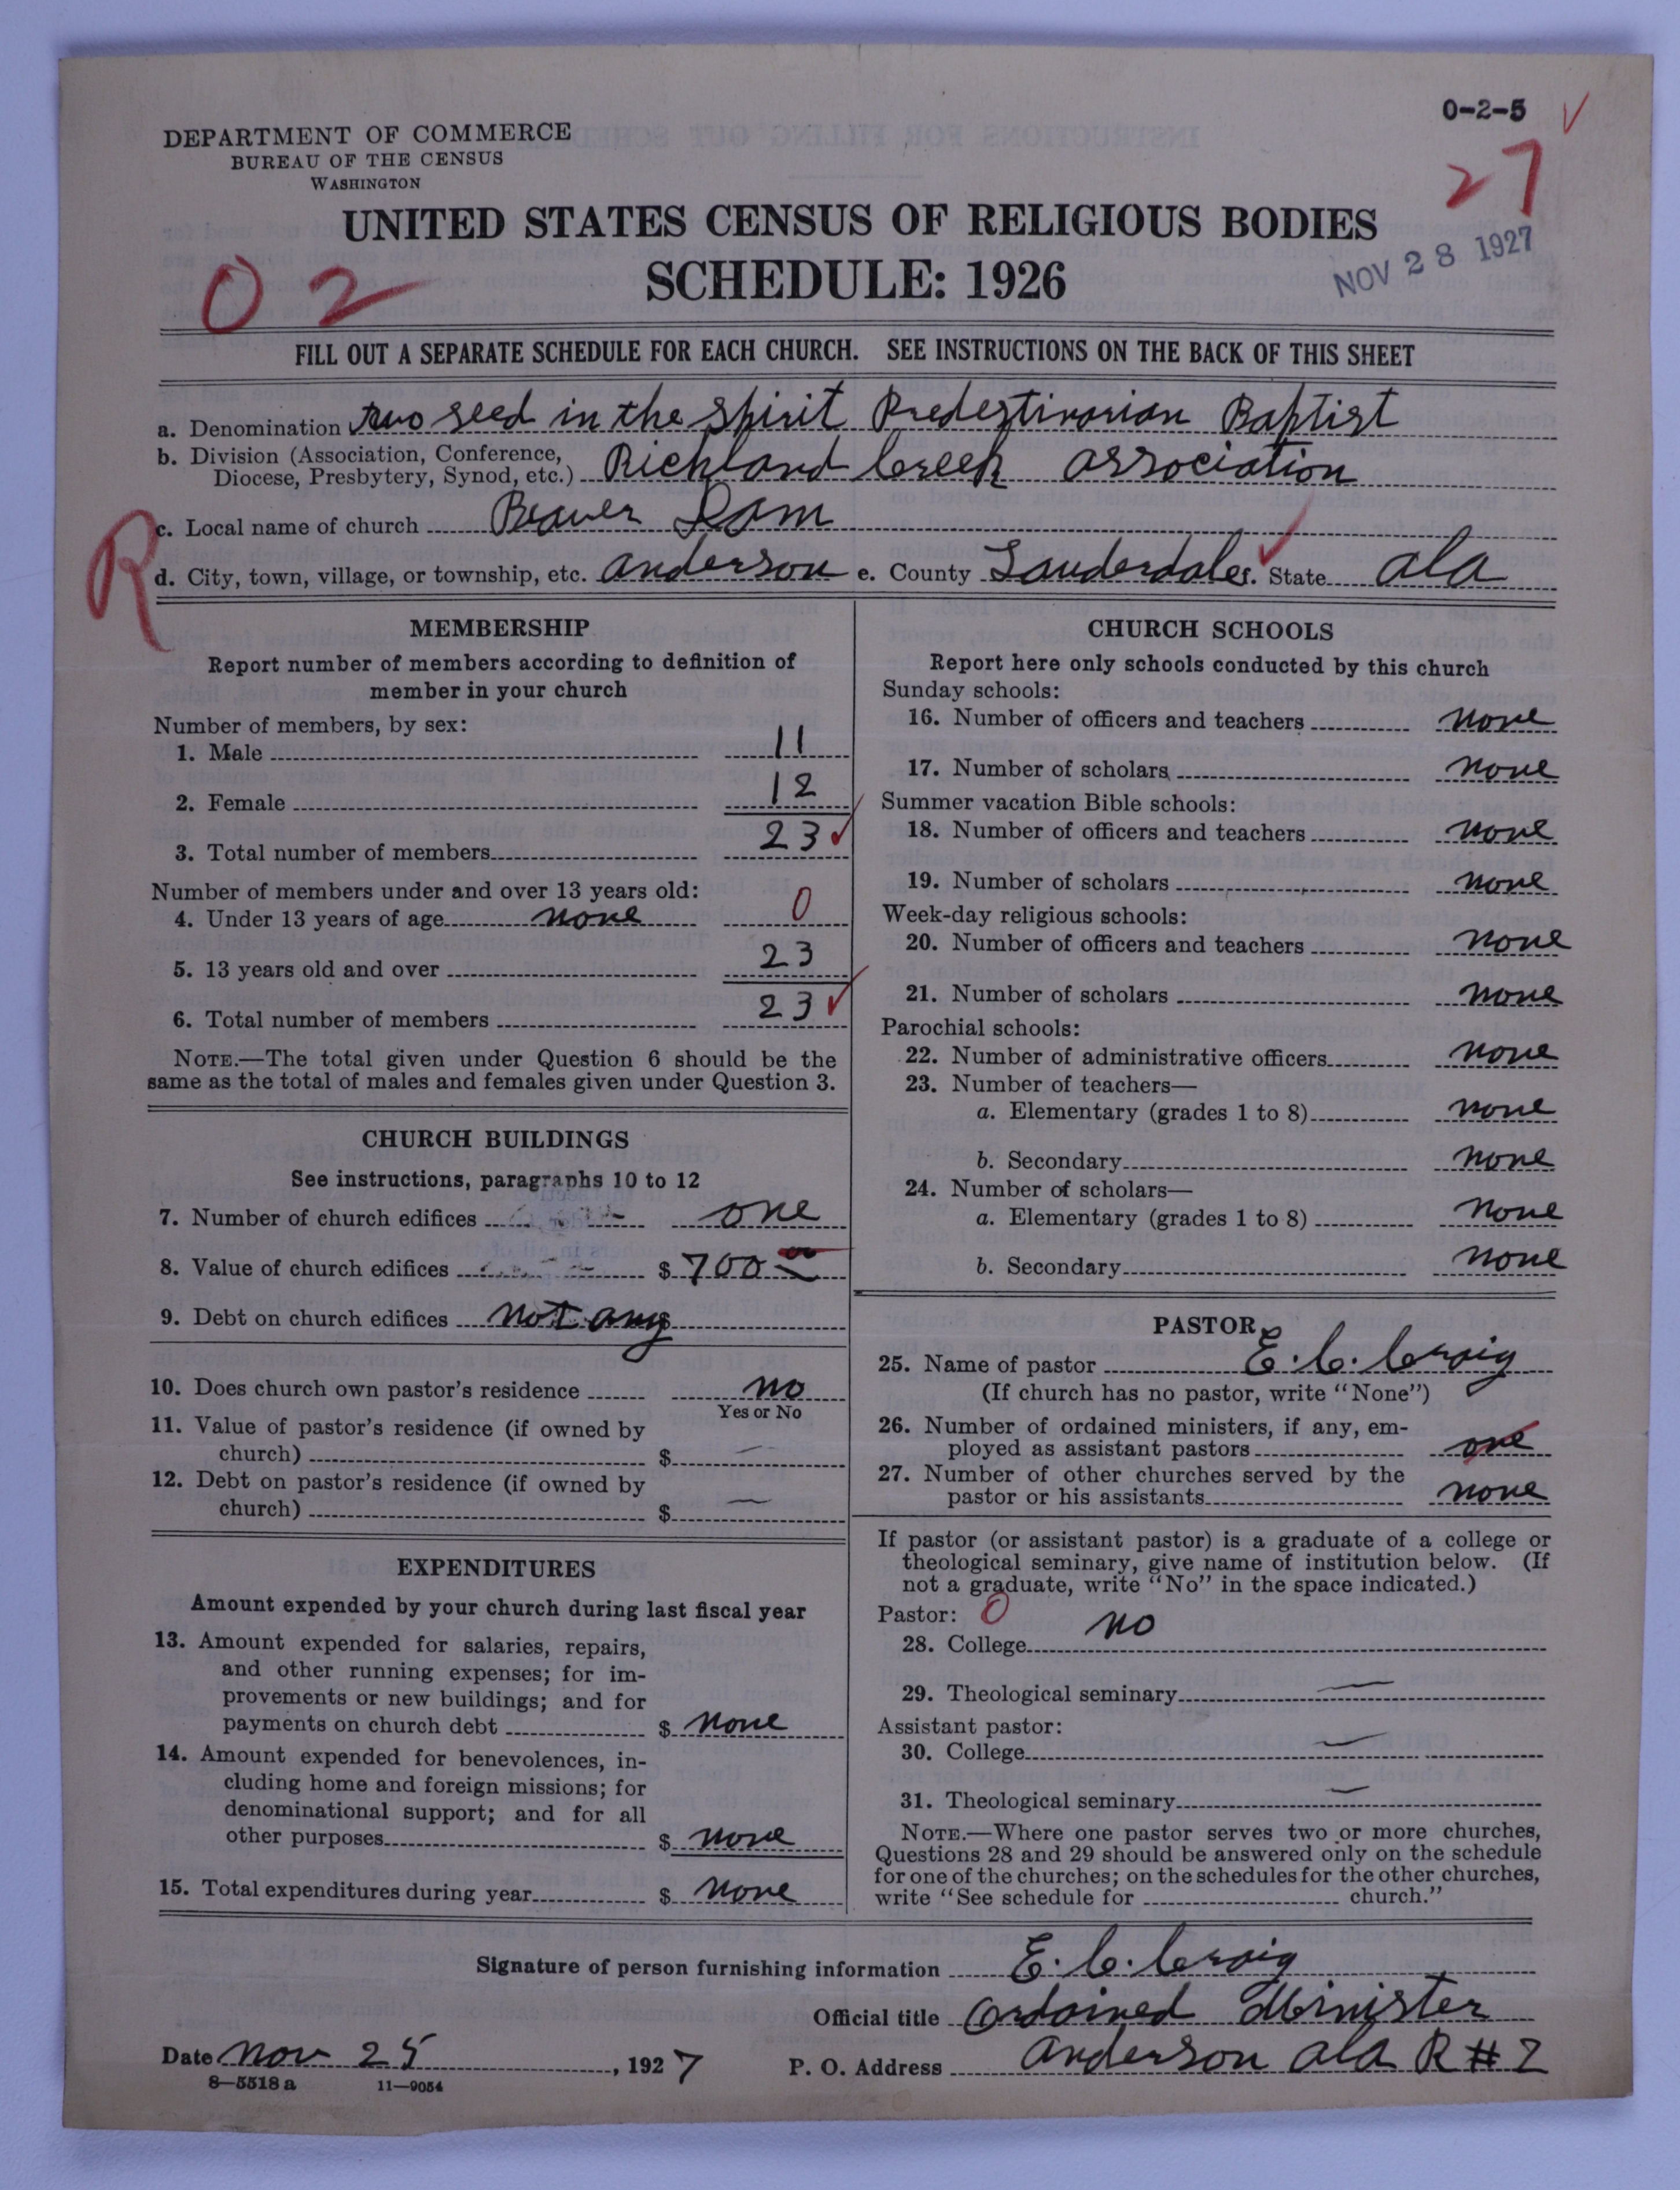 0-2-5
27
DEPARTMENT OF COMMERCE
BUREAU OF THE CENSUS
WASHINGTON
UNITED STATES CENSUS OF RELIGIOUS BODIES
SCHEDULE: 1926
NOV 28 1927
02
FILL OUT A SEPARATE SCHEDULE FOR EACH CHURCH. SEE INSTRUCTIONS ON THE BACK OF THIS SHEET
a. Denomination two seed in the spirit Predestinarian Baptist
b. Division (Association, Conference,
Diocese, Presbytery, Synod, etc.) Richland Creek association
R
c. Local name of church Beaver Dam
d. City, town, village, or township, etc. anderson e. County Lauderdale f. State ala
MEMBERSHIP
Report number of members according to definition of
member in your church
Number of members, by sex:
1. Male 11
2. Female 12
3. Total number of members 23
Number of members under and over 13 years old:
4. Under 13 years of age none 0
5. 13 years old and over 23
6. Total number of members 23
NOTE.—The total given under Question 6 should be the
same as the total of males and females given under Question 3.
CHURCH BUILDINGS
See instructions, paragraphs 10 to 12
7. Number of church edifices one
8. Value of church edifices $ 700 00
9. Debt on church edifices not any $
10. Does church own pastor's residence no
Yes or No
11. Value of pastor's residence (if owned by
church) $ —
12. Debt on pastor's residence (if owned by
church) $ —
EXPENDITURES
Amount expended by your church during last fiscal year
13. Amount expended for salaries, repairs,
and other running expenses; for im-
provements or new buildings; and for
payments on church debt $ none
14. Amount expended for benevolences, in-
cluding home and foreign missions; for
denominational support; and for all
other purposes $ none
15. Total expenditures during year $ none
CHURCH SCHOOLS
Report here only schools conducted by this church
Sunday schools:
16. Number of officers and teachers none
17. Number of scholars none
Summer vacation Bible schools:
18. Number of officers and teachers none
19. Number of scholars none
Week-day religious schools:
20. Number of officers and teachers none
21. Number of scholars none
Parochial schools:
22. Number of administrative officers none
23. Number of teachers—
a. Elementary (grades 1 to 8) none
b. Secondary none
24. Number of scholars—
a. Elementary (grades 1 to 8) none
b. Secondary none
PASTOR
25. Name of pastor E. C. Craig
(If church has no pastor, write "None")
26. Number of ordained ministers, if any, em-
ployed as assistant pastors one
27. Number of other churches served by the
pastor or his assistants none
If pastor (or assistant pastor) is a graduate of a college or
theological seminary, give name of institution below. (If
not a graduate, write "No" in the space indicated.)
Pastor: 0
28. College no
29. Theological seminary —
Assistant pastor:
30. College —
31. Theological seminary —
NOTE.—Where one pastor serves two or more churches,
Questions 28 and 29 should be answered only on the schedule
for one of the churches; on the schedules for the other churches,
write "See schedule for church."
Signature of person furnishing information E. C. Craig
Official title Ordained Minister
Date Nov 25, 1927 P. O. Address anderson ala R #2
8—5518 a 11—9054